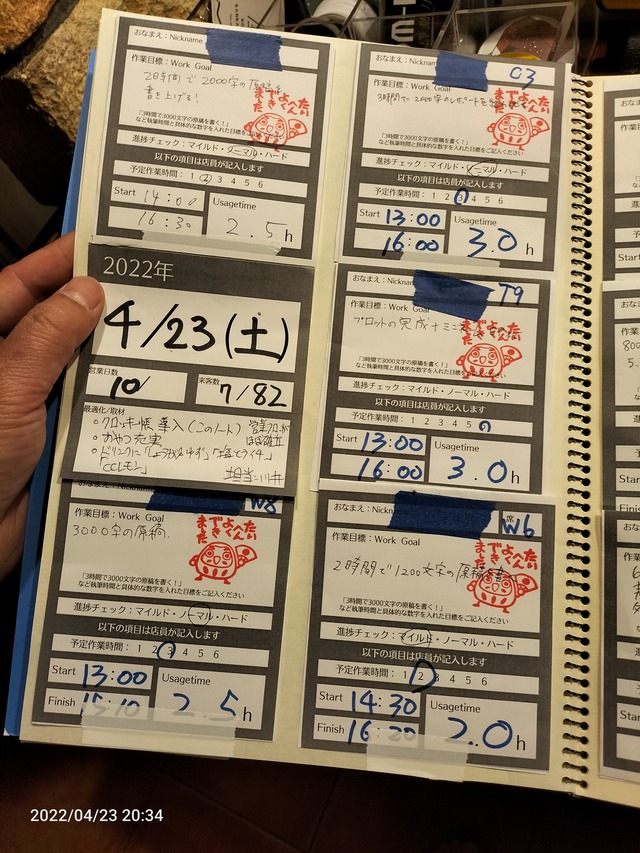 おなまえ：Nickname
作業目標：Work Goal
2時間で2000字の原稿を
書き上げる!
「3時間で3000文字の原稿を書く！」
など執筆時間と具体的な数字を入れた目標をご記入ください
進捗チェック：マイルド・ノーマル・ハード
以下の項目は店員が記入します
予定作業時間： 1 2 3 4 5 6
Start 14:00
16:30
Usagetime
2.5h
おなまえ：Nickname
C3
作業目標：Work Goal
3時間で2000字のレポートを
「3時間で3000文字の原稿を書く！」
など執筆時間と具体的な数字を入れた目標をご記入ください
進捗チェック：マイルド・ノーマル・ハード
以下の項目は店員が記入します
予定作業時間： 1 2 3 4 5 6
Start 13:00
16:00
Usagetime
3.0h
2022年
4/23(土)
営業日数
10/
来客数
7/82
最適化/取材
・クロッキー帳導入(このノート)
・おやつ充実
担当：川井
おなまえ：Nickname
T9
作業目標：Work Goal
プロットの完成
「3時間で3000文字の原稿を書く！」
など執筆時間と具体的な数字を入れた目標をご記入ください
進捗チェック：マイルド・ノーマル・ハード
以下の項目は店員が記入します
予定作業時間： 1 2 3 4 5
Start 13:00
16:00
Usagetime
3.0h
おなまえ：Nickname
W8
作業目標：Work Goal
3000字の原稿.
「3時間で3000文字の原稿を書く！」
など執筆時間と具体的な数字を入れた目標をご記入ください
進捗チェック：マイルド・ノーマル・ハード
以下の項目は店員が記入します
予定作業時間： 1 2 3 4 5 6
Start 13:00
Finish 15:10
Usagetime
2.5h
おなまえ：Nickname
席
W6
作業目標：Work Goal
2時間で1200文字の原稿を書く
「3時間で3000文字の原稿を書く！」
など執筆時間と具体的な数字を入れた目標をご記入ください
進捗チェック：マイルド・ノーマル・ハード
以下の項目は店員が記入します
予定作業時間： 1 2 3 4 5 6
Start 14:30
Finish 16:20
Usagetime
2.0h
2022/04/23 20:34